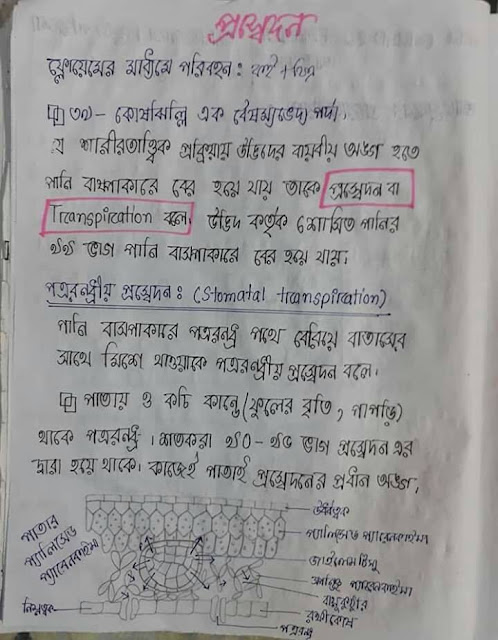 প্রস্বেদন
ফ্লোয়েমের মাধ্যমে পরিবহন : বই + চিত্র
৩৯ - কোষঝিল্লি এক বৈষম্যভেদ্য পর্দা।
যে শারীরতাত্ত্বিক প্রক্রিয়ায় উদ্ভিদের বায়বীয় অঙ্গ হতে
পানি বাষ্পাকারে বের হয়ে যায় তাকে প্রস্বেদন বা
Transpiration বলে। উদ্ভিদ কর্তৃক শোষিত পানির
৯৯ ভাগ পানি বাষ্পাকারে বের হয়ে যায়।
পত্ররন্ধ্রীয় প্রস্বেদন : (Stomatal transpiration)
পানি বাষ্পাকারে পত্ররন্ধ্র পথে বেরিয়ে বাতাসের
সাথে মিশে যাওয়াকে পত্ররন্ধ্রীয় প্রস্বেদন বলে।
পাতায় ও কচি কান্ডে (ফুলের বৃতি, পাপড়ি)
থাকে পত্ররন্ধ্র। শতকরা ৯০-৯৫ ভাগ প্রস্বেদন এর
দ্বারা হয়ে থাকে। কাজেই পাতাই প্রস্বেদনের প্রধান অঙ্গ।
পাতার
প্যালিসেড
প্যারেনকাইমা
নিম্নত্বক
উর্ধ্বত্বক
প্যালিসেড প্যারেনকাইমা
জাইলেম টিস্যু
স্পঞ্জি প্যারেনকাইমা
বায়ুকুঠুরি
রক্ষীকোষ
পত্ররন্ধ্র